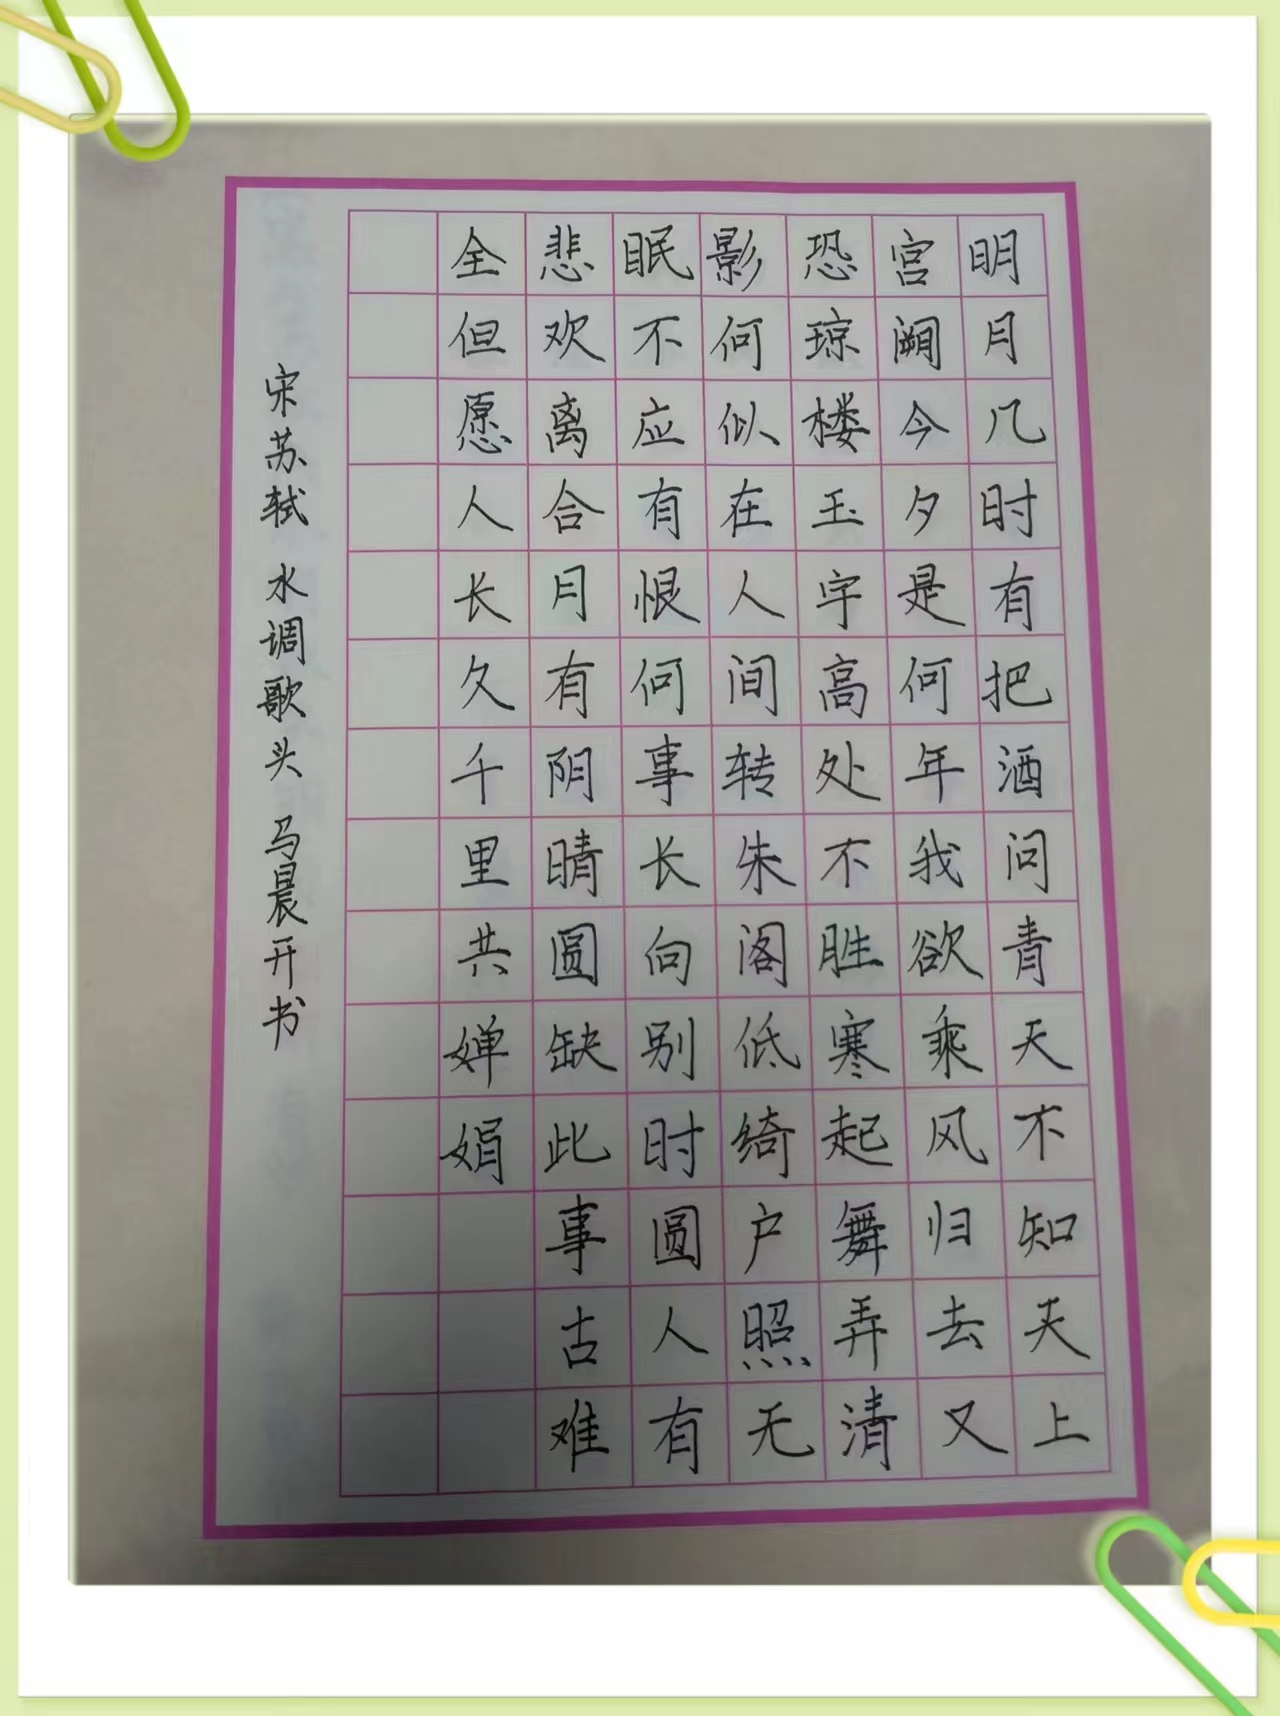 明月几时有把酒问青天不知天上
宫阙今夕是何年我欲乘风归去又
恐琼楼玉宇高处不胜寒起舞弄清
影何似在人间转朱阁低绮户照无
眠不应有恨何事长向别时圆人有
悲欢离合月有阴晴圆缺此事古难
全但愿人长久千里共婵娟
宋苏轼 水调歌头 马晨开书